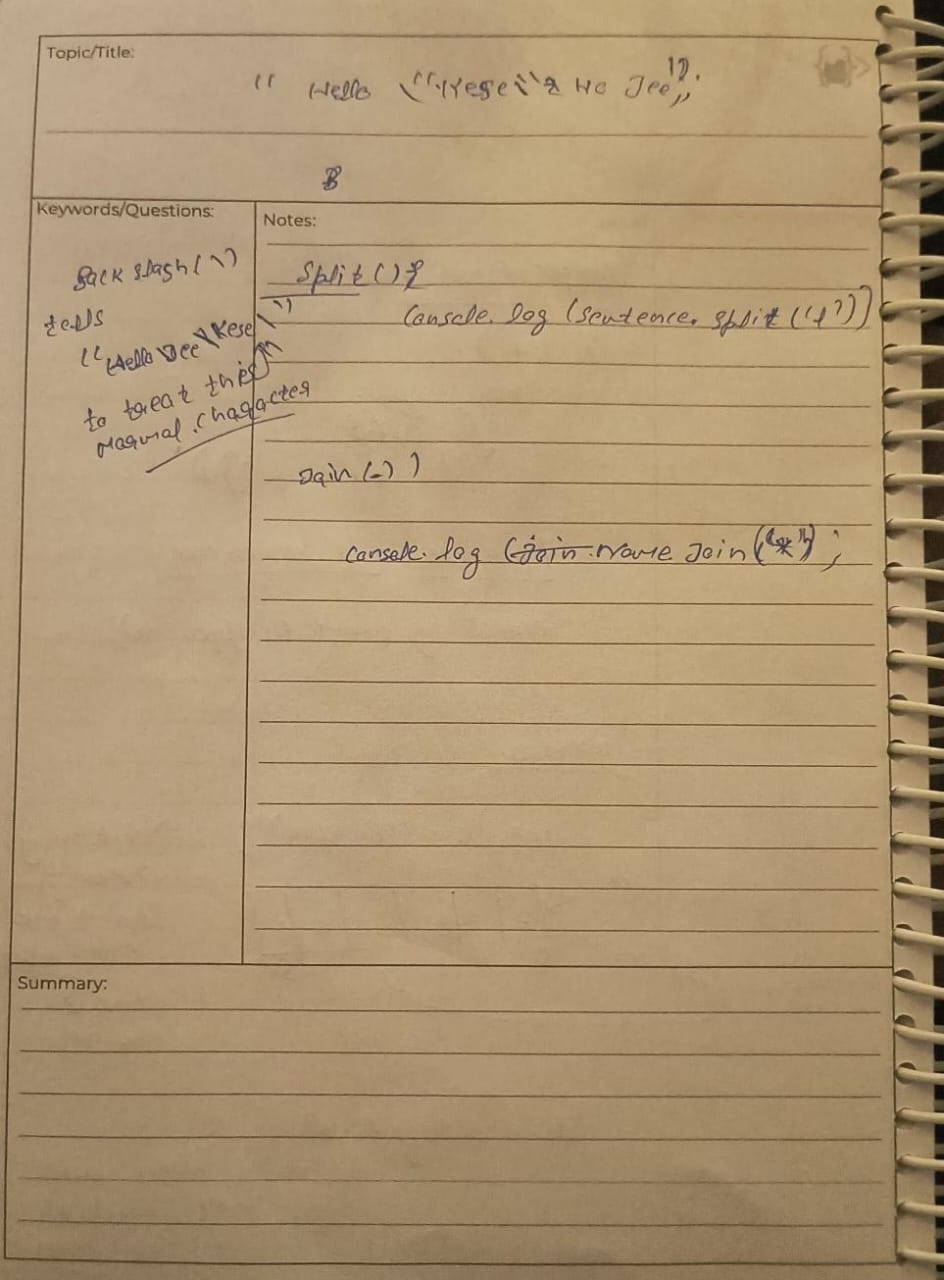 Topic/Title:
" Hello \" He Jee");
B
Keywords/Questions:
Back slash (\)
tells
"Hello Dee \Kese \")
to treat this
normal character
Notes:
Split()
Console.log (sentence. split (' '))
Join(-) )
Console.log (join. Name Join("*");
Summary: